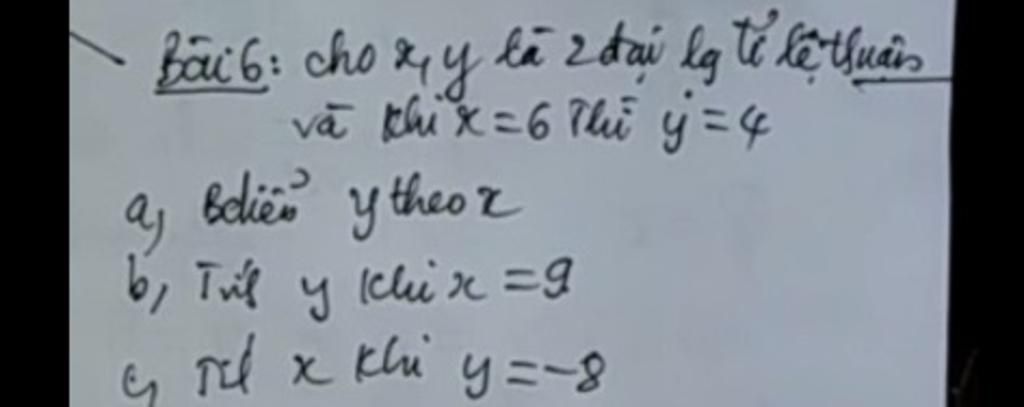 Bài 6: cho x, y là 2 đại lg tỉ lệ thuận
và khi x = 6 Thì y = 4
a, Bdiễn y theo x
b, Tính y khi x = 9
c, Tính x khi y = -8